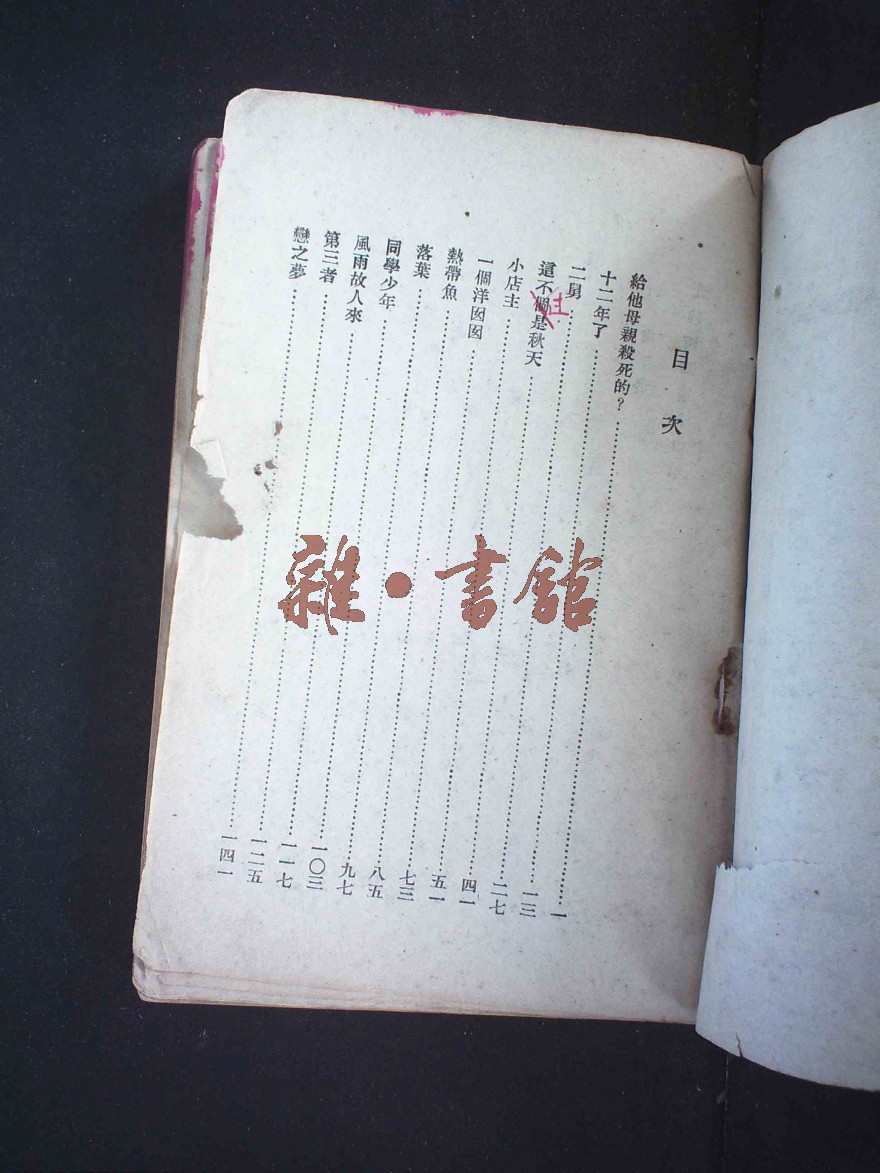 目次
給他母親殺死的?……一
十二年了……一三
二舅……二七
這不個是秋天……四一
小店主……五一
一個洋囡囡……七三
熱帶魚……八五
落葉……九七
同學少年……一〇三
風雨故人來……一一七
第三者……一二五
戀之夢……一四一
雜·書館